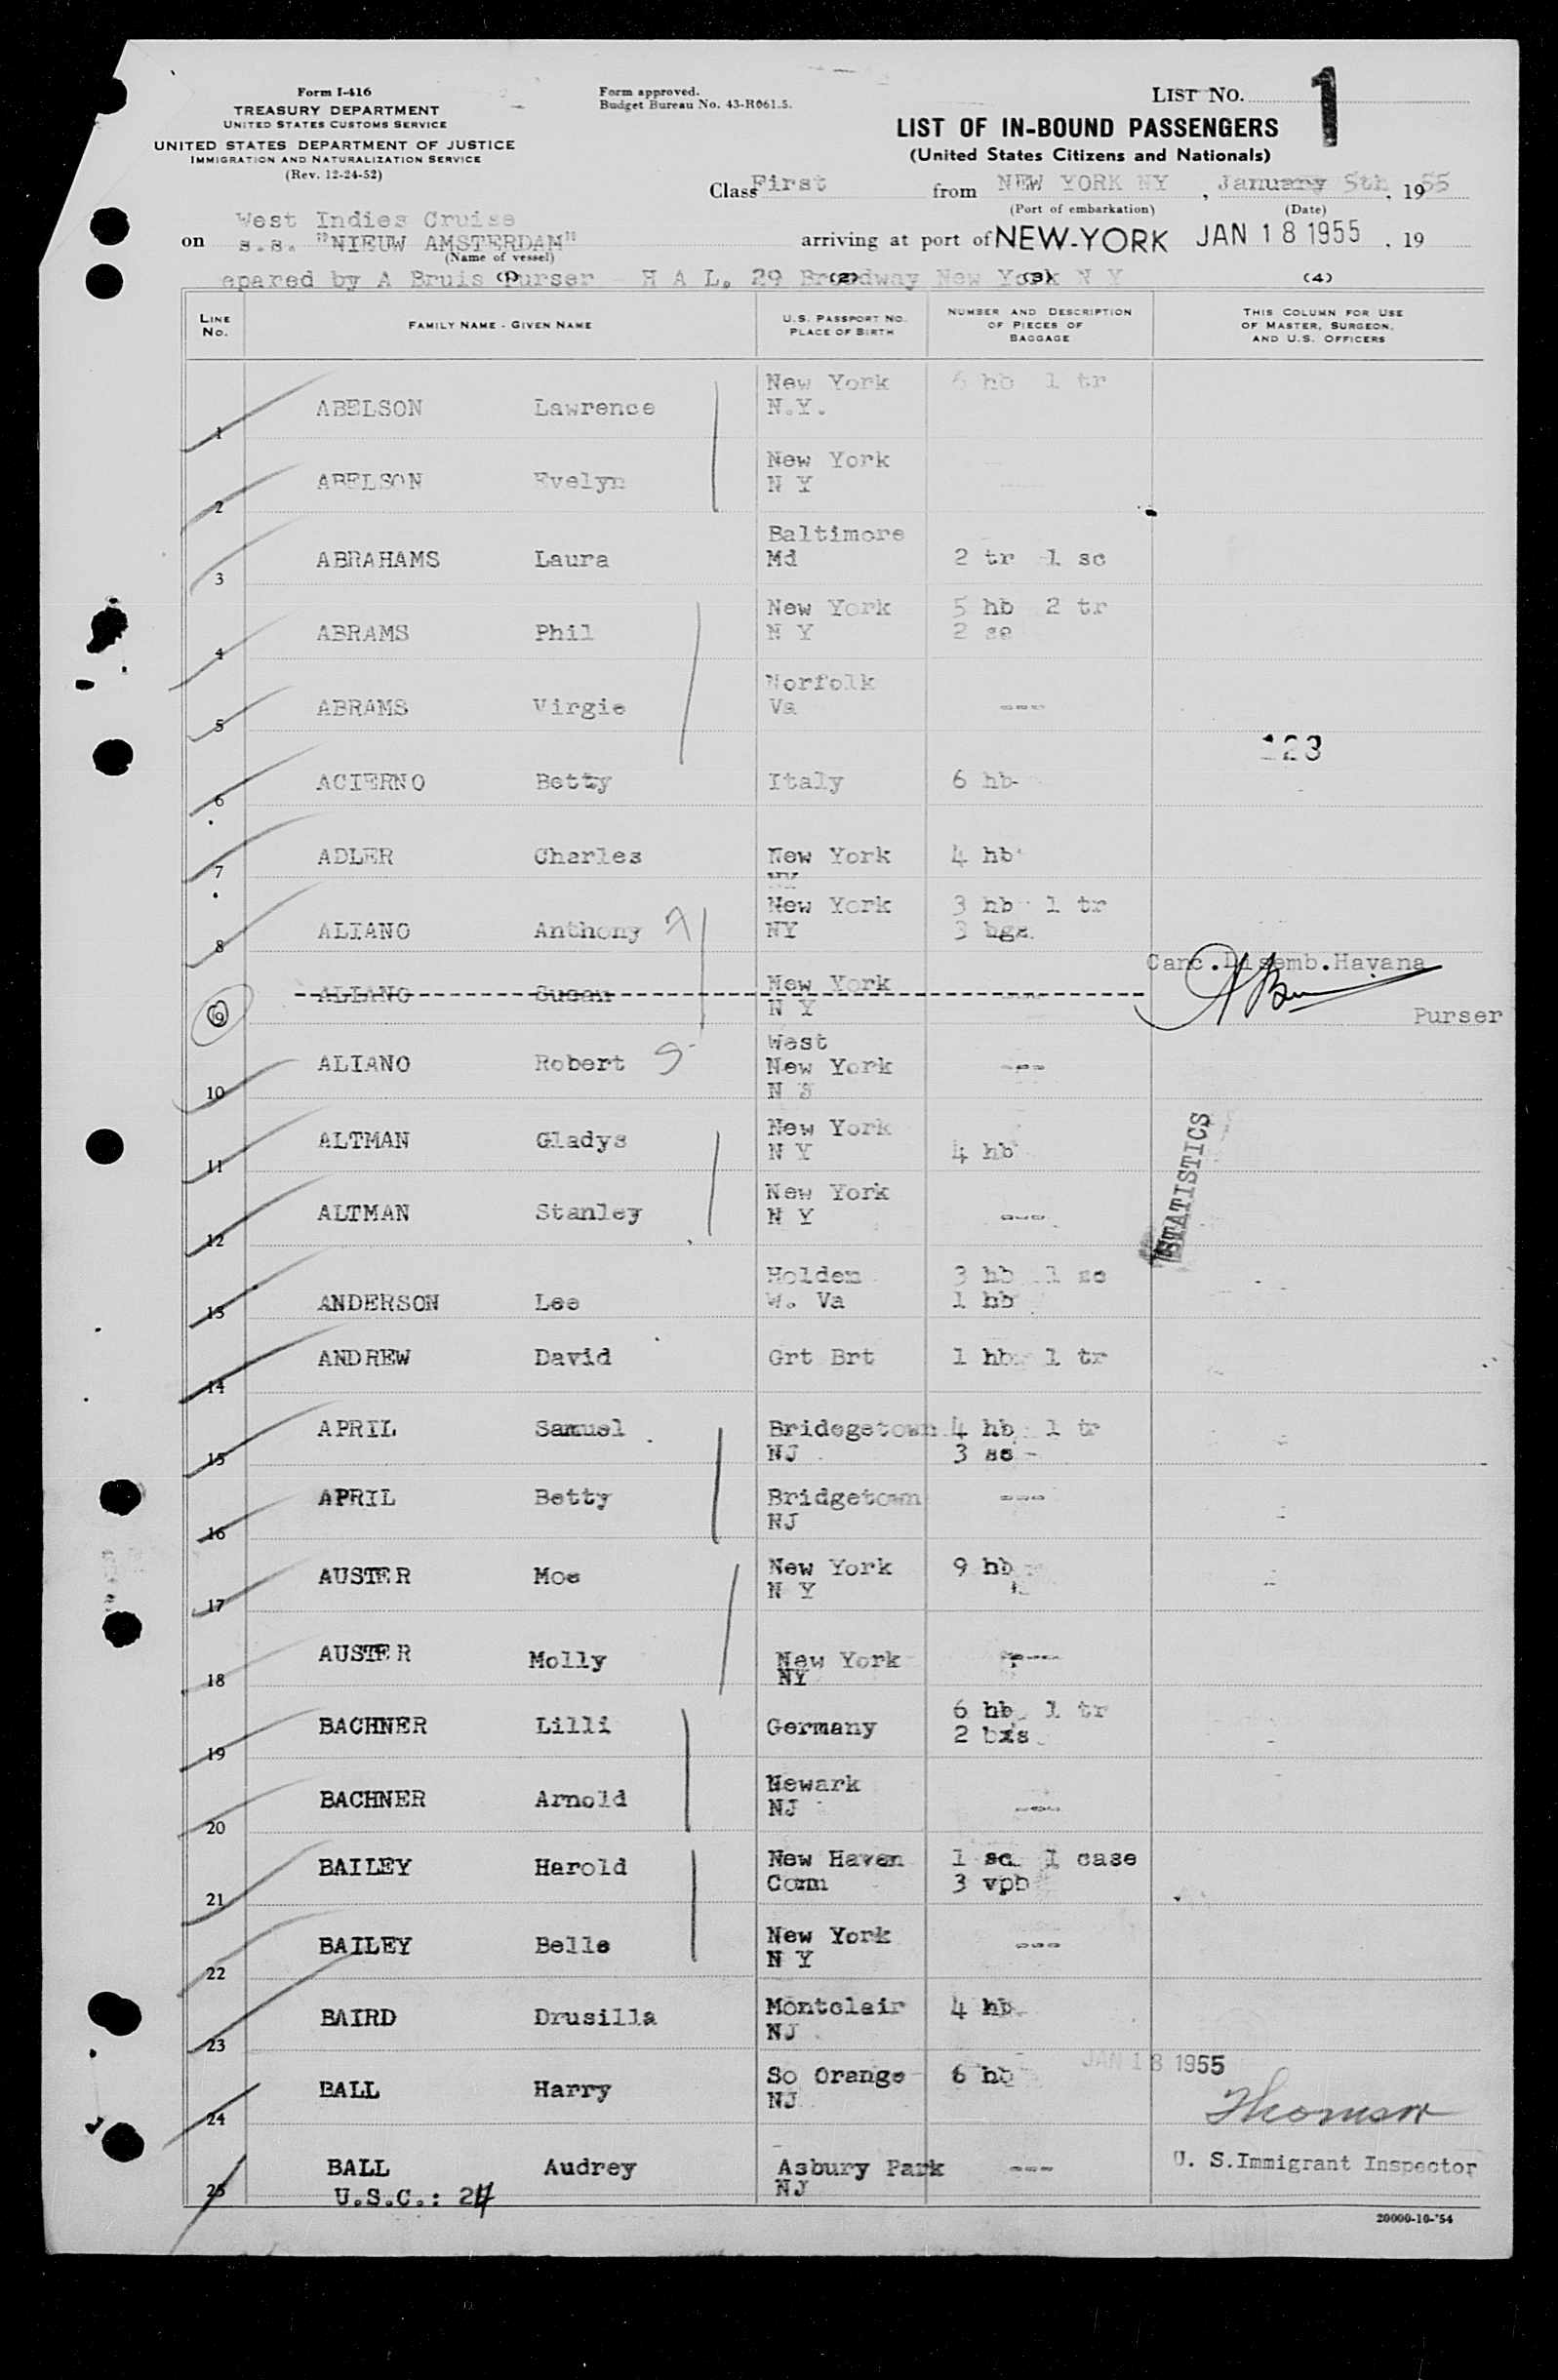 Form I-416
TREASURY DEPARTMENT
UNITED STATES CUSTOMS SERVICE
UNITED STATES DEPARTMENT OF JUSTICE
IMMIGRATION AND NATURALIZATION SERVICE
(Rev. 12-24-52)
Form approved.
Budget Bureau No. 43-R061.5.
LIST NO. 1
LIST OF IN-BOUND PASSENGERS
(United States Citizens and Nationals)
Class First from NEW YORK NY, January 5th, 1955
(Port of embarkation) (Date)
West Indies Cruise
on s.s. "NIEUW AMSTERDAM" arriving at port of NEW-YORK JAN 18 1955, 19
(Name of vessel)
epared by A Bruis Purser H A L. 29 Broadway New York N Y
(1) (2) (3) (4)
LINE No. FAMILY NAME - GIVEN NAME U.S. PASSPORT NO. PLACE OF BIRTH NUMBER AND DESCRIPTION OF PIECES OF BAGGAGE THIS COLUMN FOR USE OF MASTER, SURGEON, AND U.S. OFFICERS
1 ABELSON Lawrence New York N.Y. 6 hb 1 tr
2 ABELSON Evelyn New York N Y
3 ABRAHAMS Laura Baltimore Md 2 tr 1 sc
4 ABRAMS Phil New York N Y 5 hb 2 tr 2 sc
5 ABRAMS Virgie Norfolk Va ---
123
6 ACIERNO Betty Italy 6 hb
7 ADLER Charles New York NY 4 hb
8 ALIANO Anthony 7 New York NY 3 hb 1 tr 3 bgs
9 ALIANO Susan New York N Y --- Canc.Disemb.Havana
Purser
10 ALIANO Robert West New York N J ---
11 ALTMAN Gladys New York N Y 4 hb
STATISTICS
12 ALTMAN Stanley New York N Y ---
13 ANDERSON Lee Holden W. Va 3 hb 1 sc 1 hb
14 ANDREW David Grt Brt 1 hb 1 tr
15 APRIL Samuel Bridegetown NJ 4 hb 1 tr 3 sc
16 APRIL Betty Bridgetown NJ ---
17 AUSTER Moe New York N Y 9 hb
18 AUSTER Molly New York NY ---
19 BACHNER Lilli Germany 6 hb 1 tr 2 bxs
20 BACHNER Arnold Newark NJ ---
21 BAILEY Harold New Haven Conn 1 sc 1 case 3 vpb
22 BAILEY Belle New York N Y ---
23 BAIRD Drusilla Montclair NJ 4 hb
JAN 18 1955
24 BALL Harry So Orange NJ 6 hb
Thomson
25 BALL Audrey Asbury Park NJ --- U. S.Immigrant Inspector
U.S.C.: 24
20000-10-'54